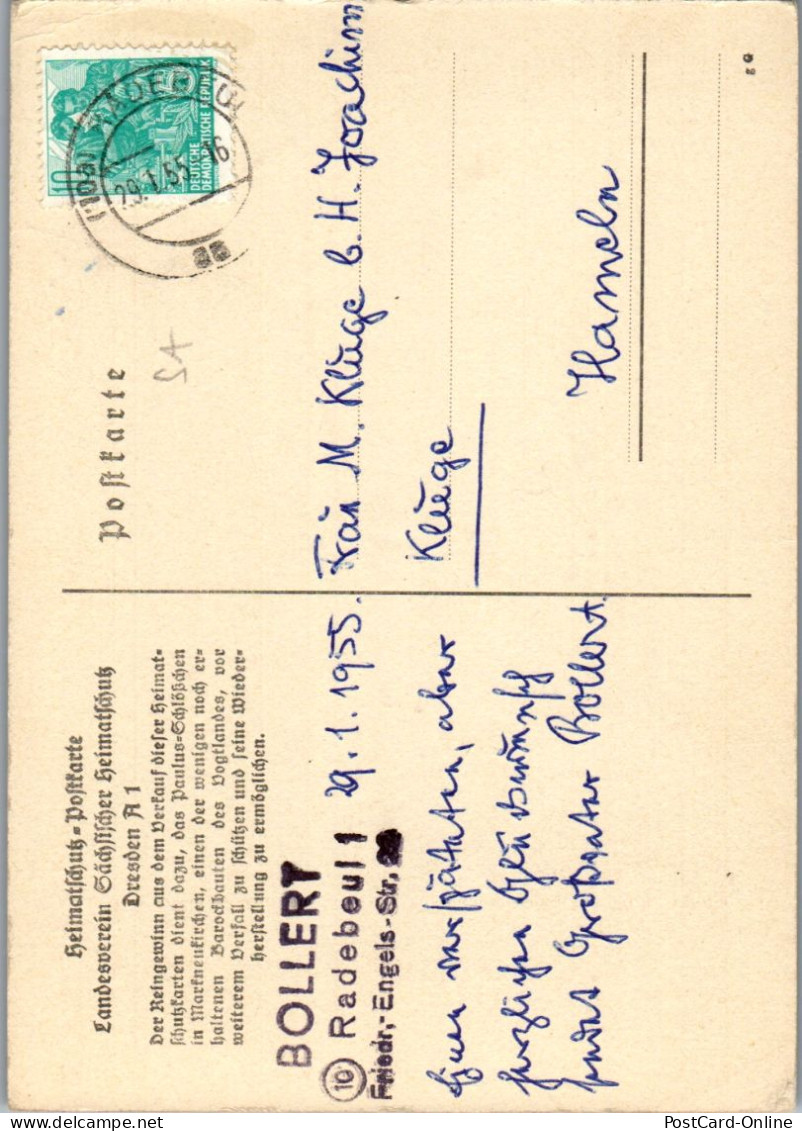 Heimatschutz-Postkarte
Landesverein Sächsischer Heimatschutz
Dresden A 1
Der Reingewinn aus dem Verkauf dieser Heimat-
schutzkarten dient dazu, das Paulus-Schlößchen
in Markneukirchen, einen der wenigen noch er-
haltenen Barockbauten des Vogtlandes, vor
weiterem Verfall zu schützen und seine Wieder-
herstellung zu ermöglichen.
BOLLERT
(10) Radebeul 1
Friedr.-Engels-Str.
29.1.1955.
Einen verspäteten, aber
herzlichen Glückwunsch
sendet Großvater Bollert.
Postkarte
10
DEUTSCHE
DEMOKRATISCHE REPUBLIK
29.1.55.-16
Frau M. Kluge b. H. Joachim
Kluge
Hameln
PostCard - PostCard-Online